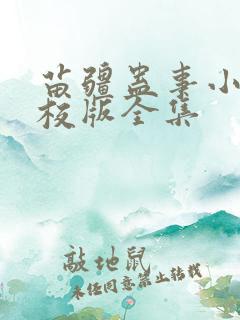 苗疆蛊毒小
校版全集
敲地鼠
未经同意禁止转载